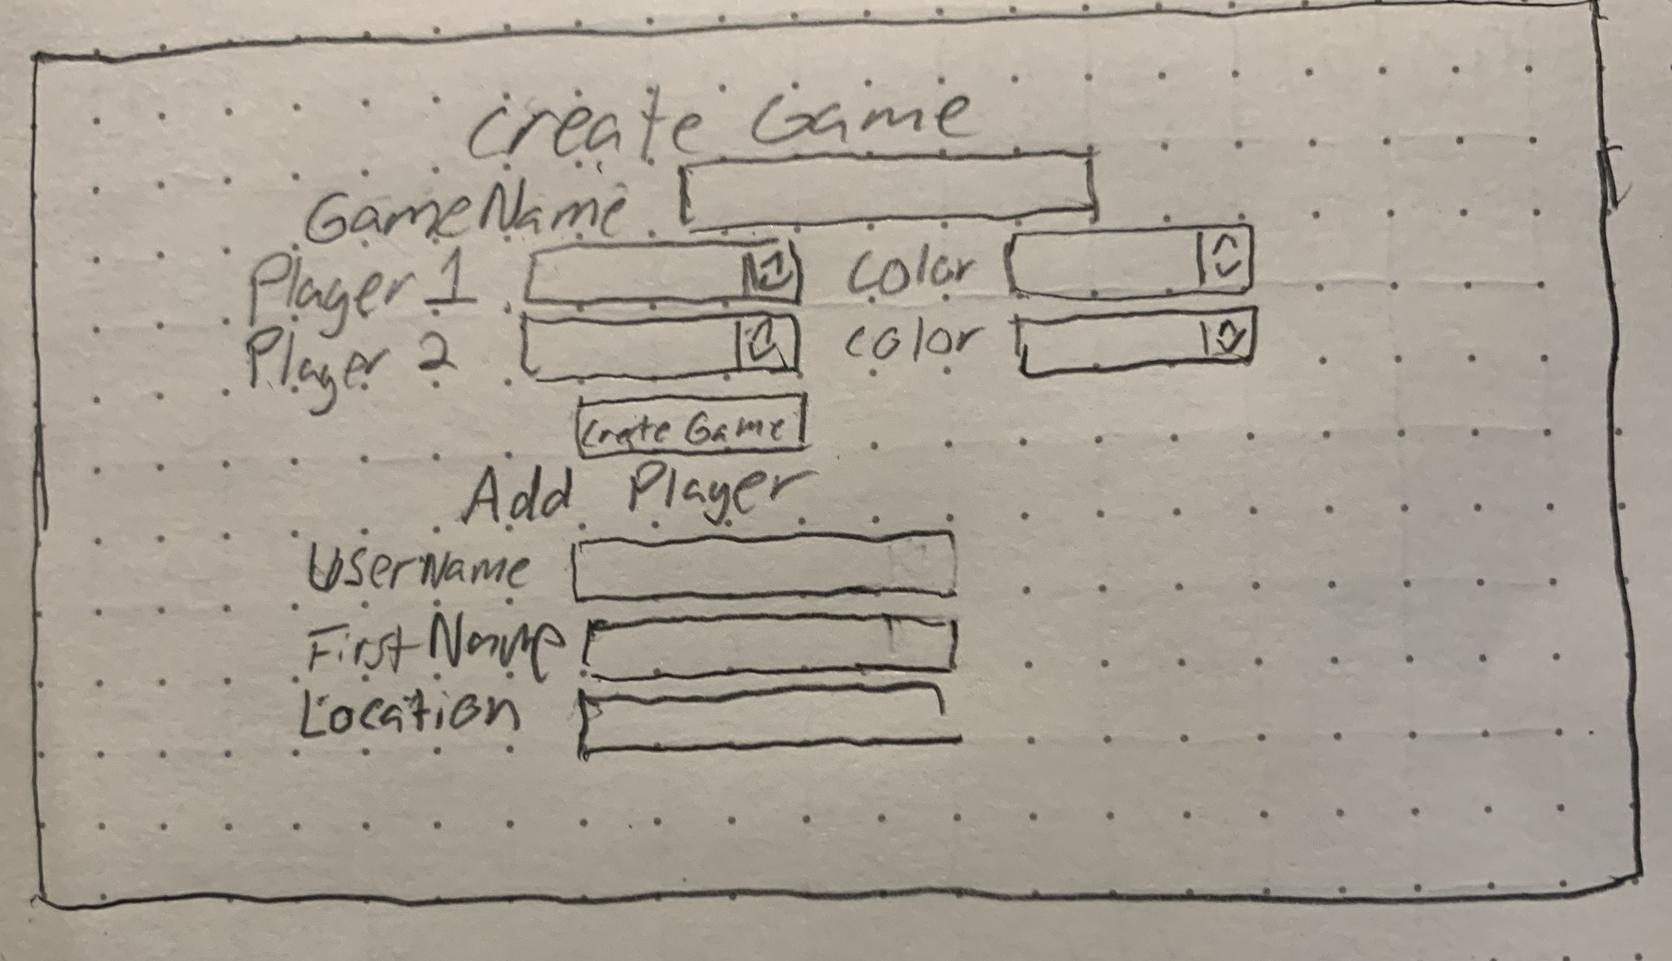 Create Game
GameName
Player 1 color
Player 2 color
Create Game
Add Player
UserName
First Name
Location